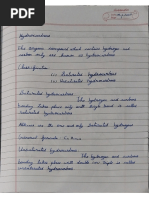 Hydrocarbons
The organic compound which contains hydrogen and
carbon only are known as hydrocarbons.
Classification
(1) Saturated hydrocarbons
(2) Unsaturated hydrocarbons
Saturated hydrocarbons
The hydrogen and carbon
bonding takes place only with single bond is called
saturated hydrocarbons.
Alkanes are the one and only saturated hydrogen
General formula : CnH2n+2
Unsaturated hydrocarbons
The hydrogen and carbon
bonding takes place with double or triple is called
unsaturated hydrocarbons.